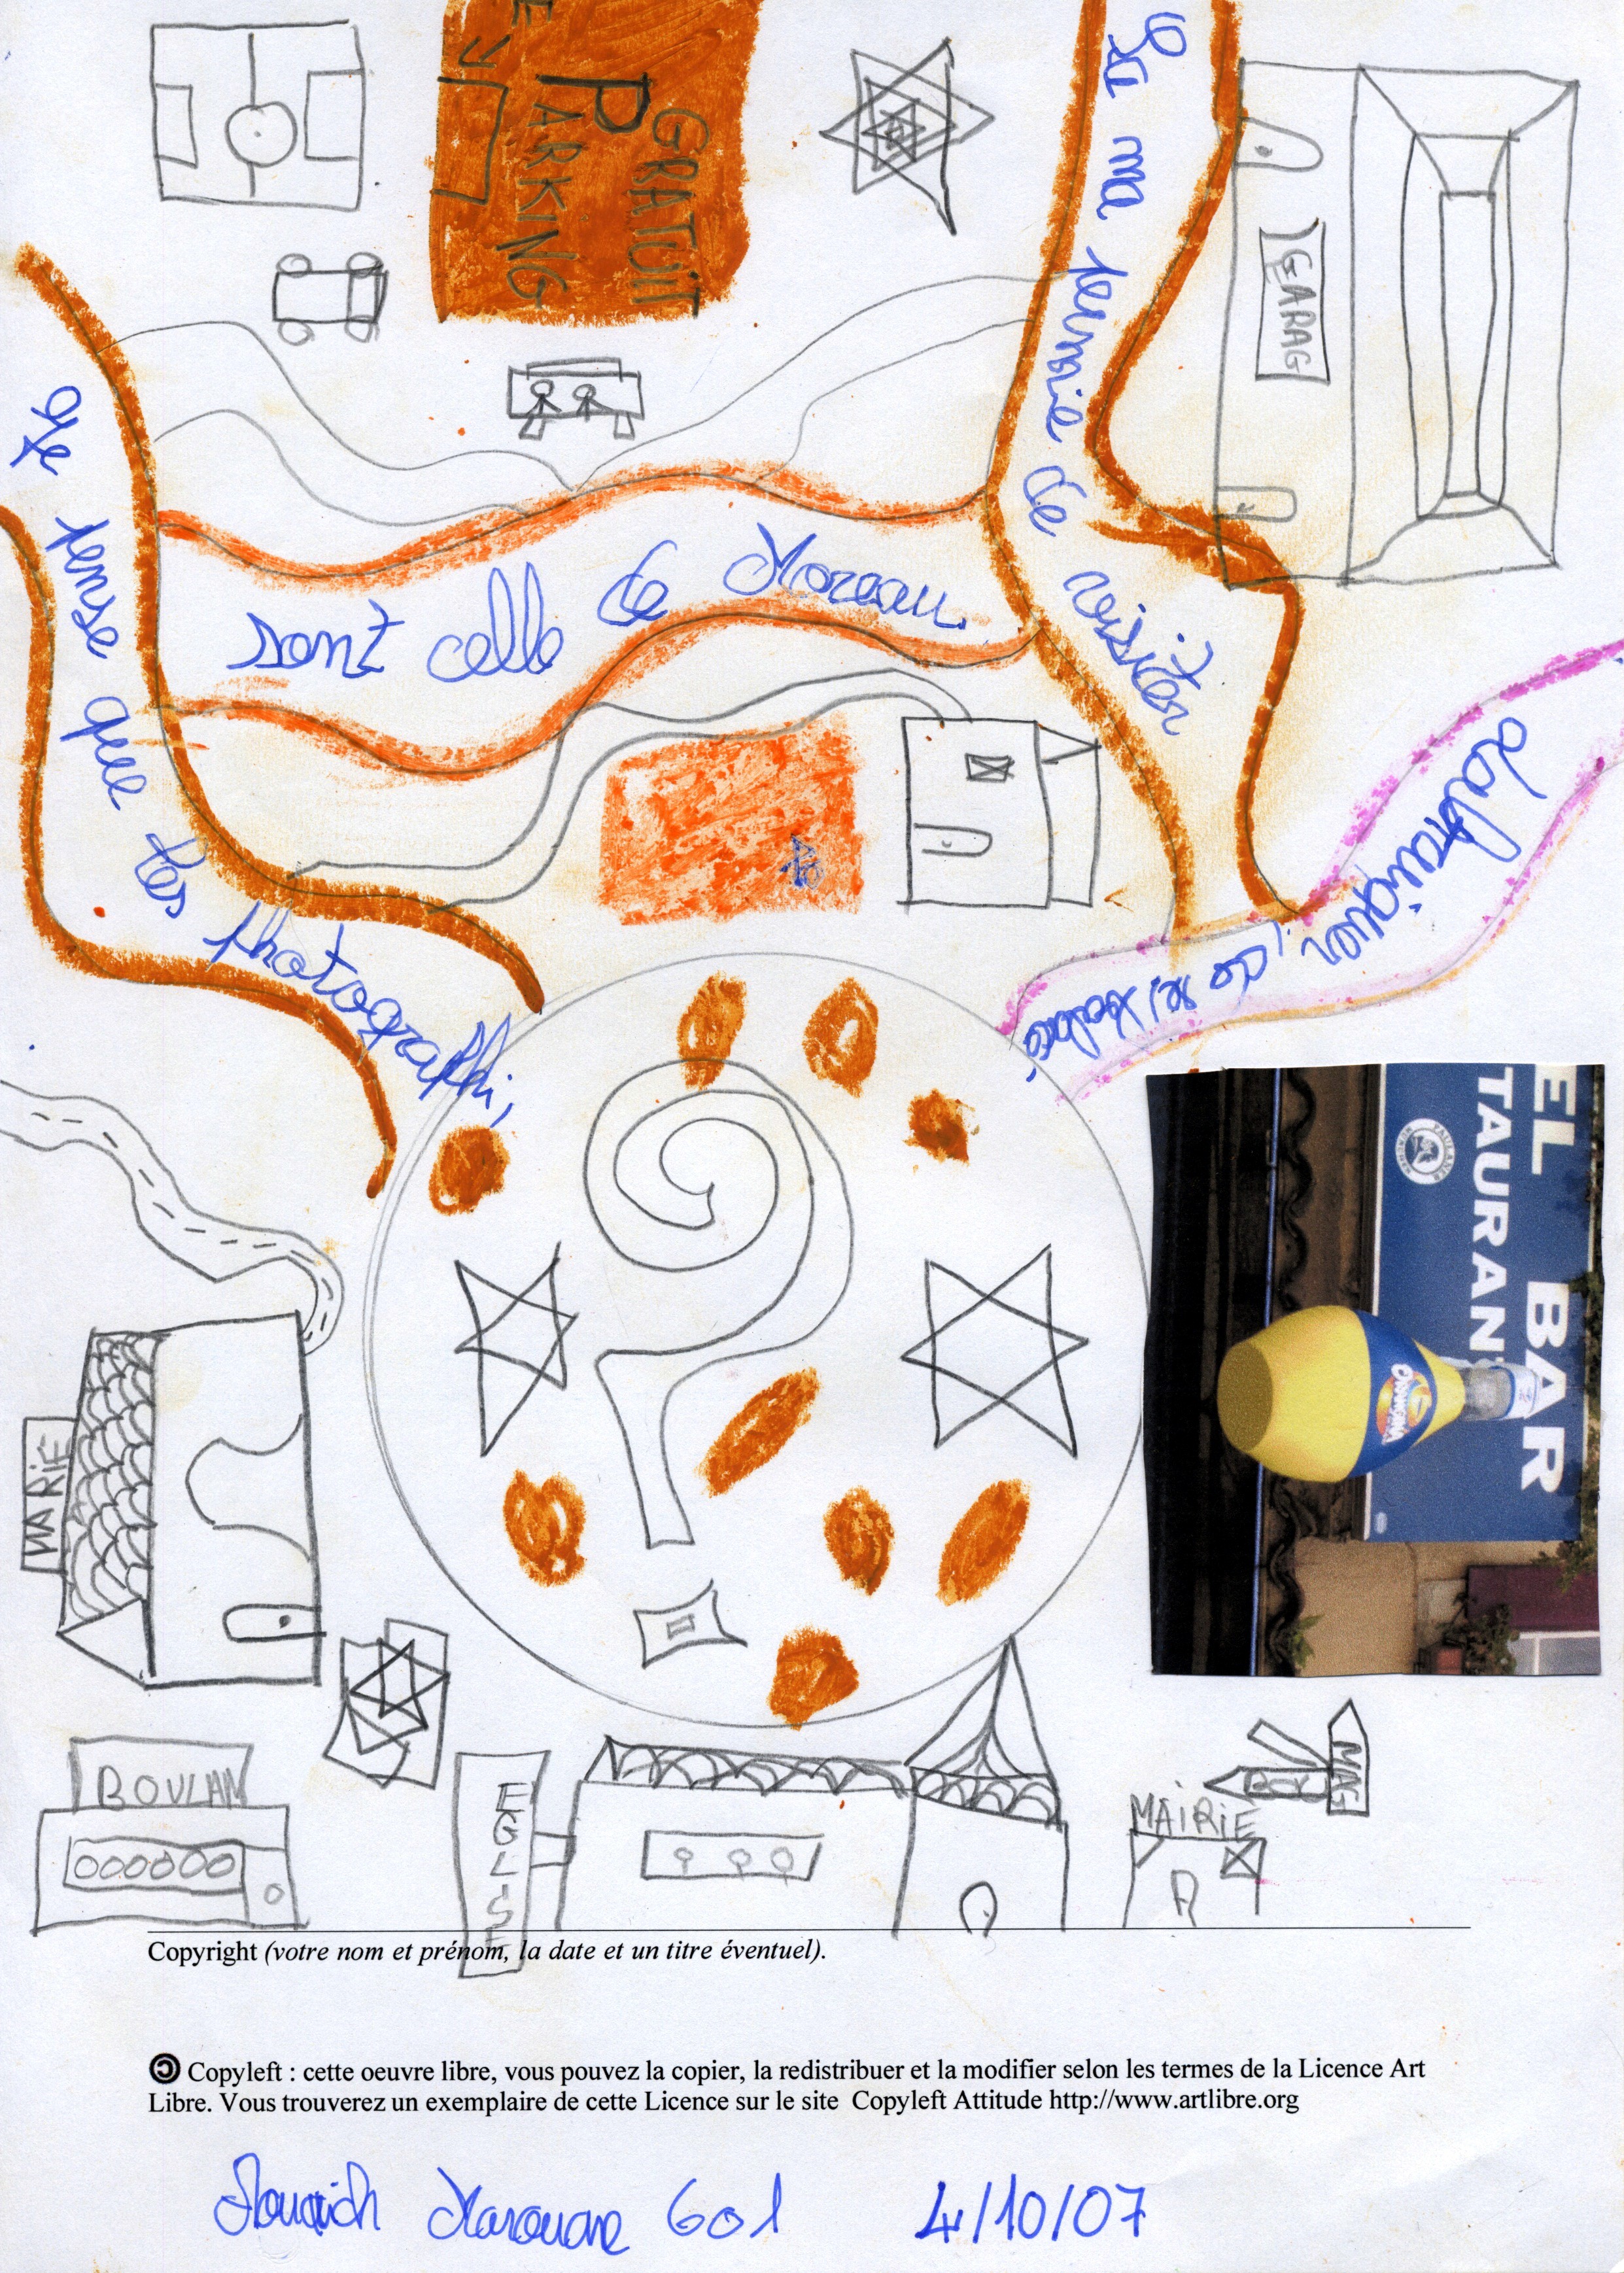 GRATUIT
PARKING
GARAG
Je pense que les photographi,
sont celle de Moreau.
Sa ma permie de visiter
EL BAR
TAURAN
PAULANER
ORANGINA
MARIE
BOULAN
EGLISE
MAIRIE
BOU
MAG
Copyright (votre nom et prénom, la date et un titre éventuel).
Copyleft : cette oeuvre libre, vous pouvez la copier, la redistribuer et la modifier selon les termes de la Licence Art
Libre. Vous trouverez un exemplaire de cette Licence sur le site Copyleft Attitude http://www.artlibre.org
Marouane 601 4/10/07